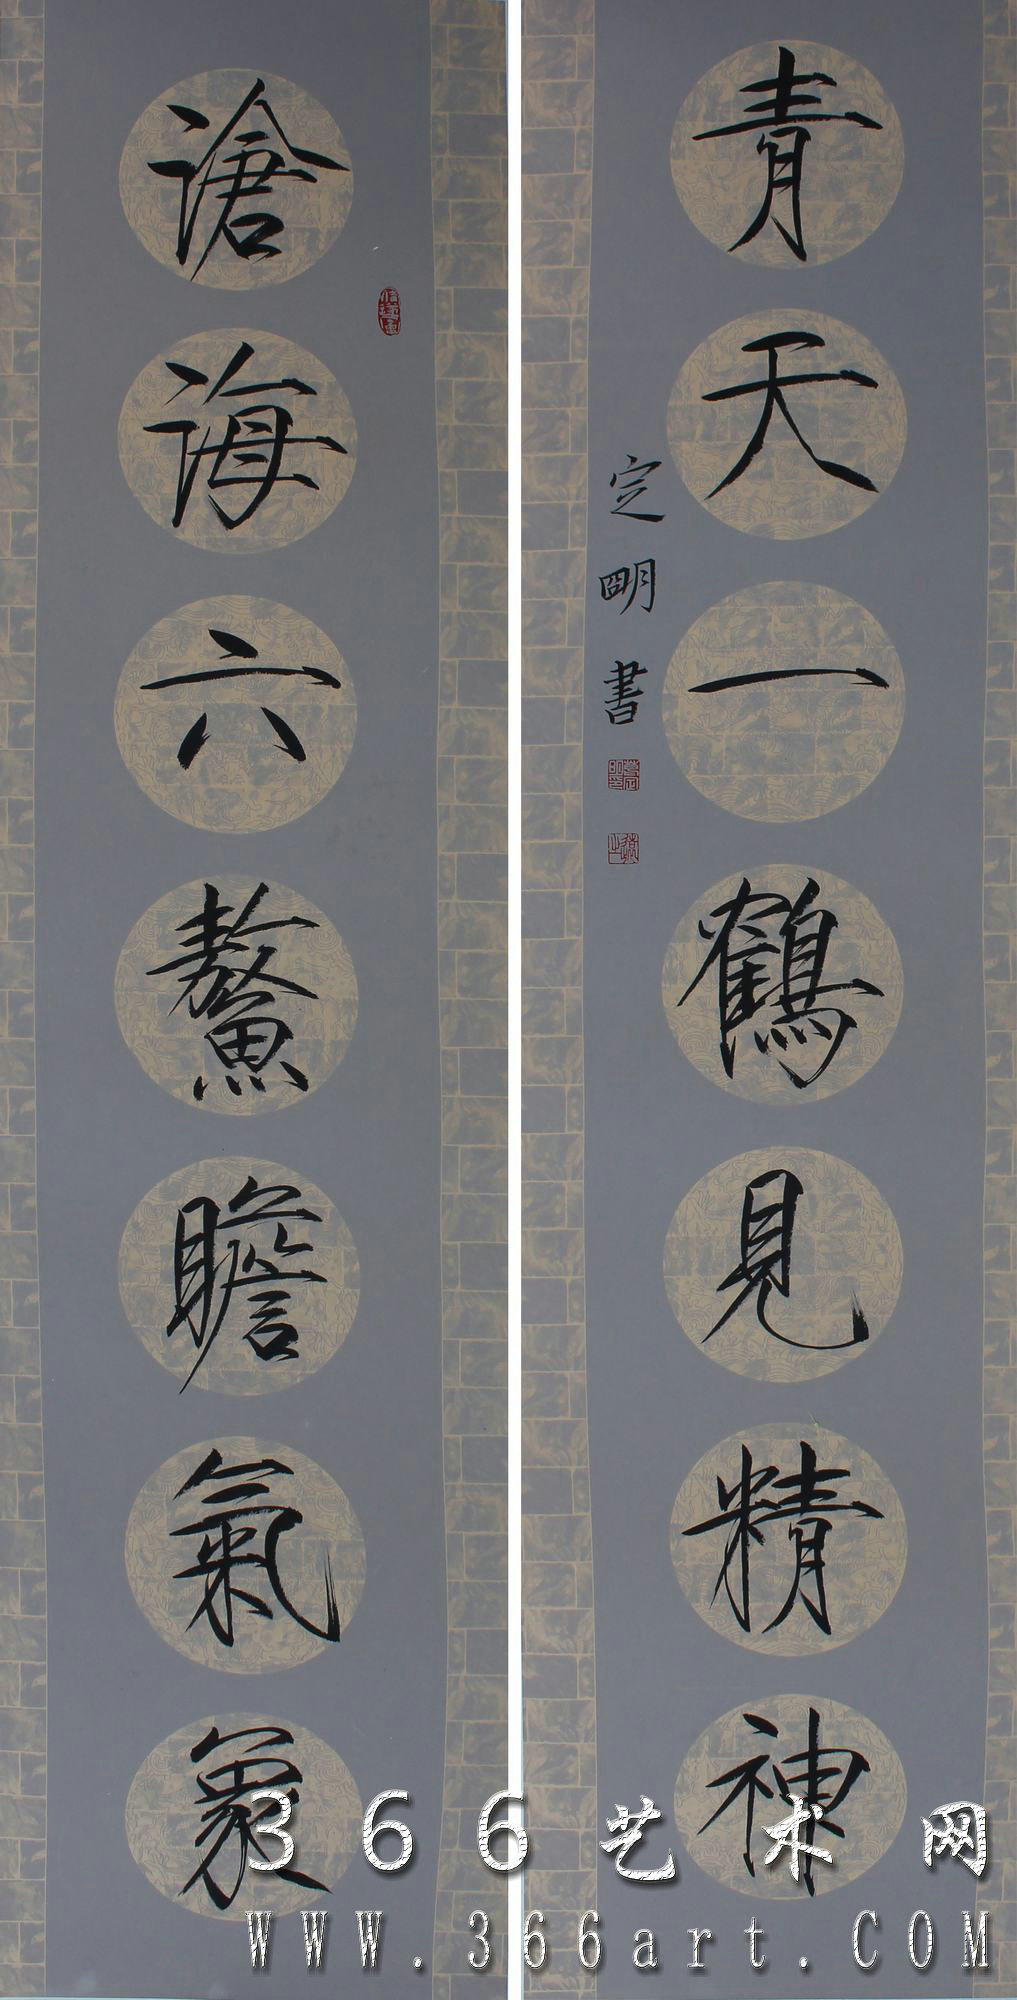 滄海六鰲瞻氣象
青天一鶴見精神
定明書
366艺术网
WWW.366art.COM